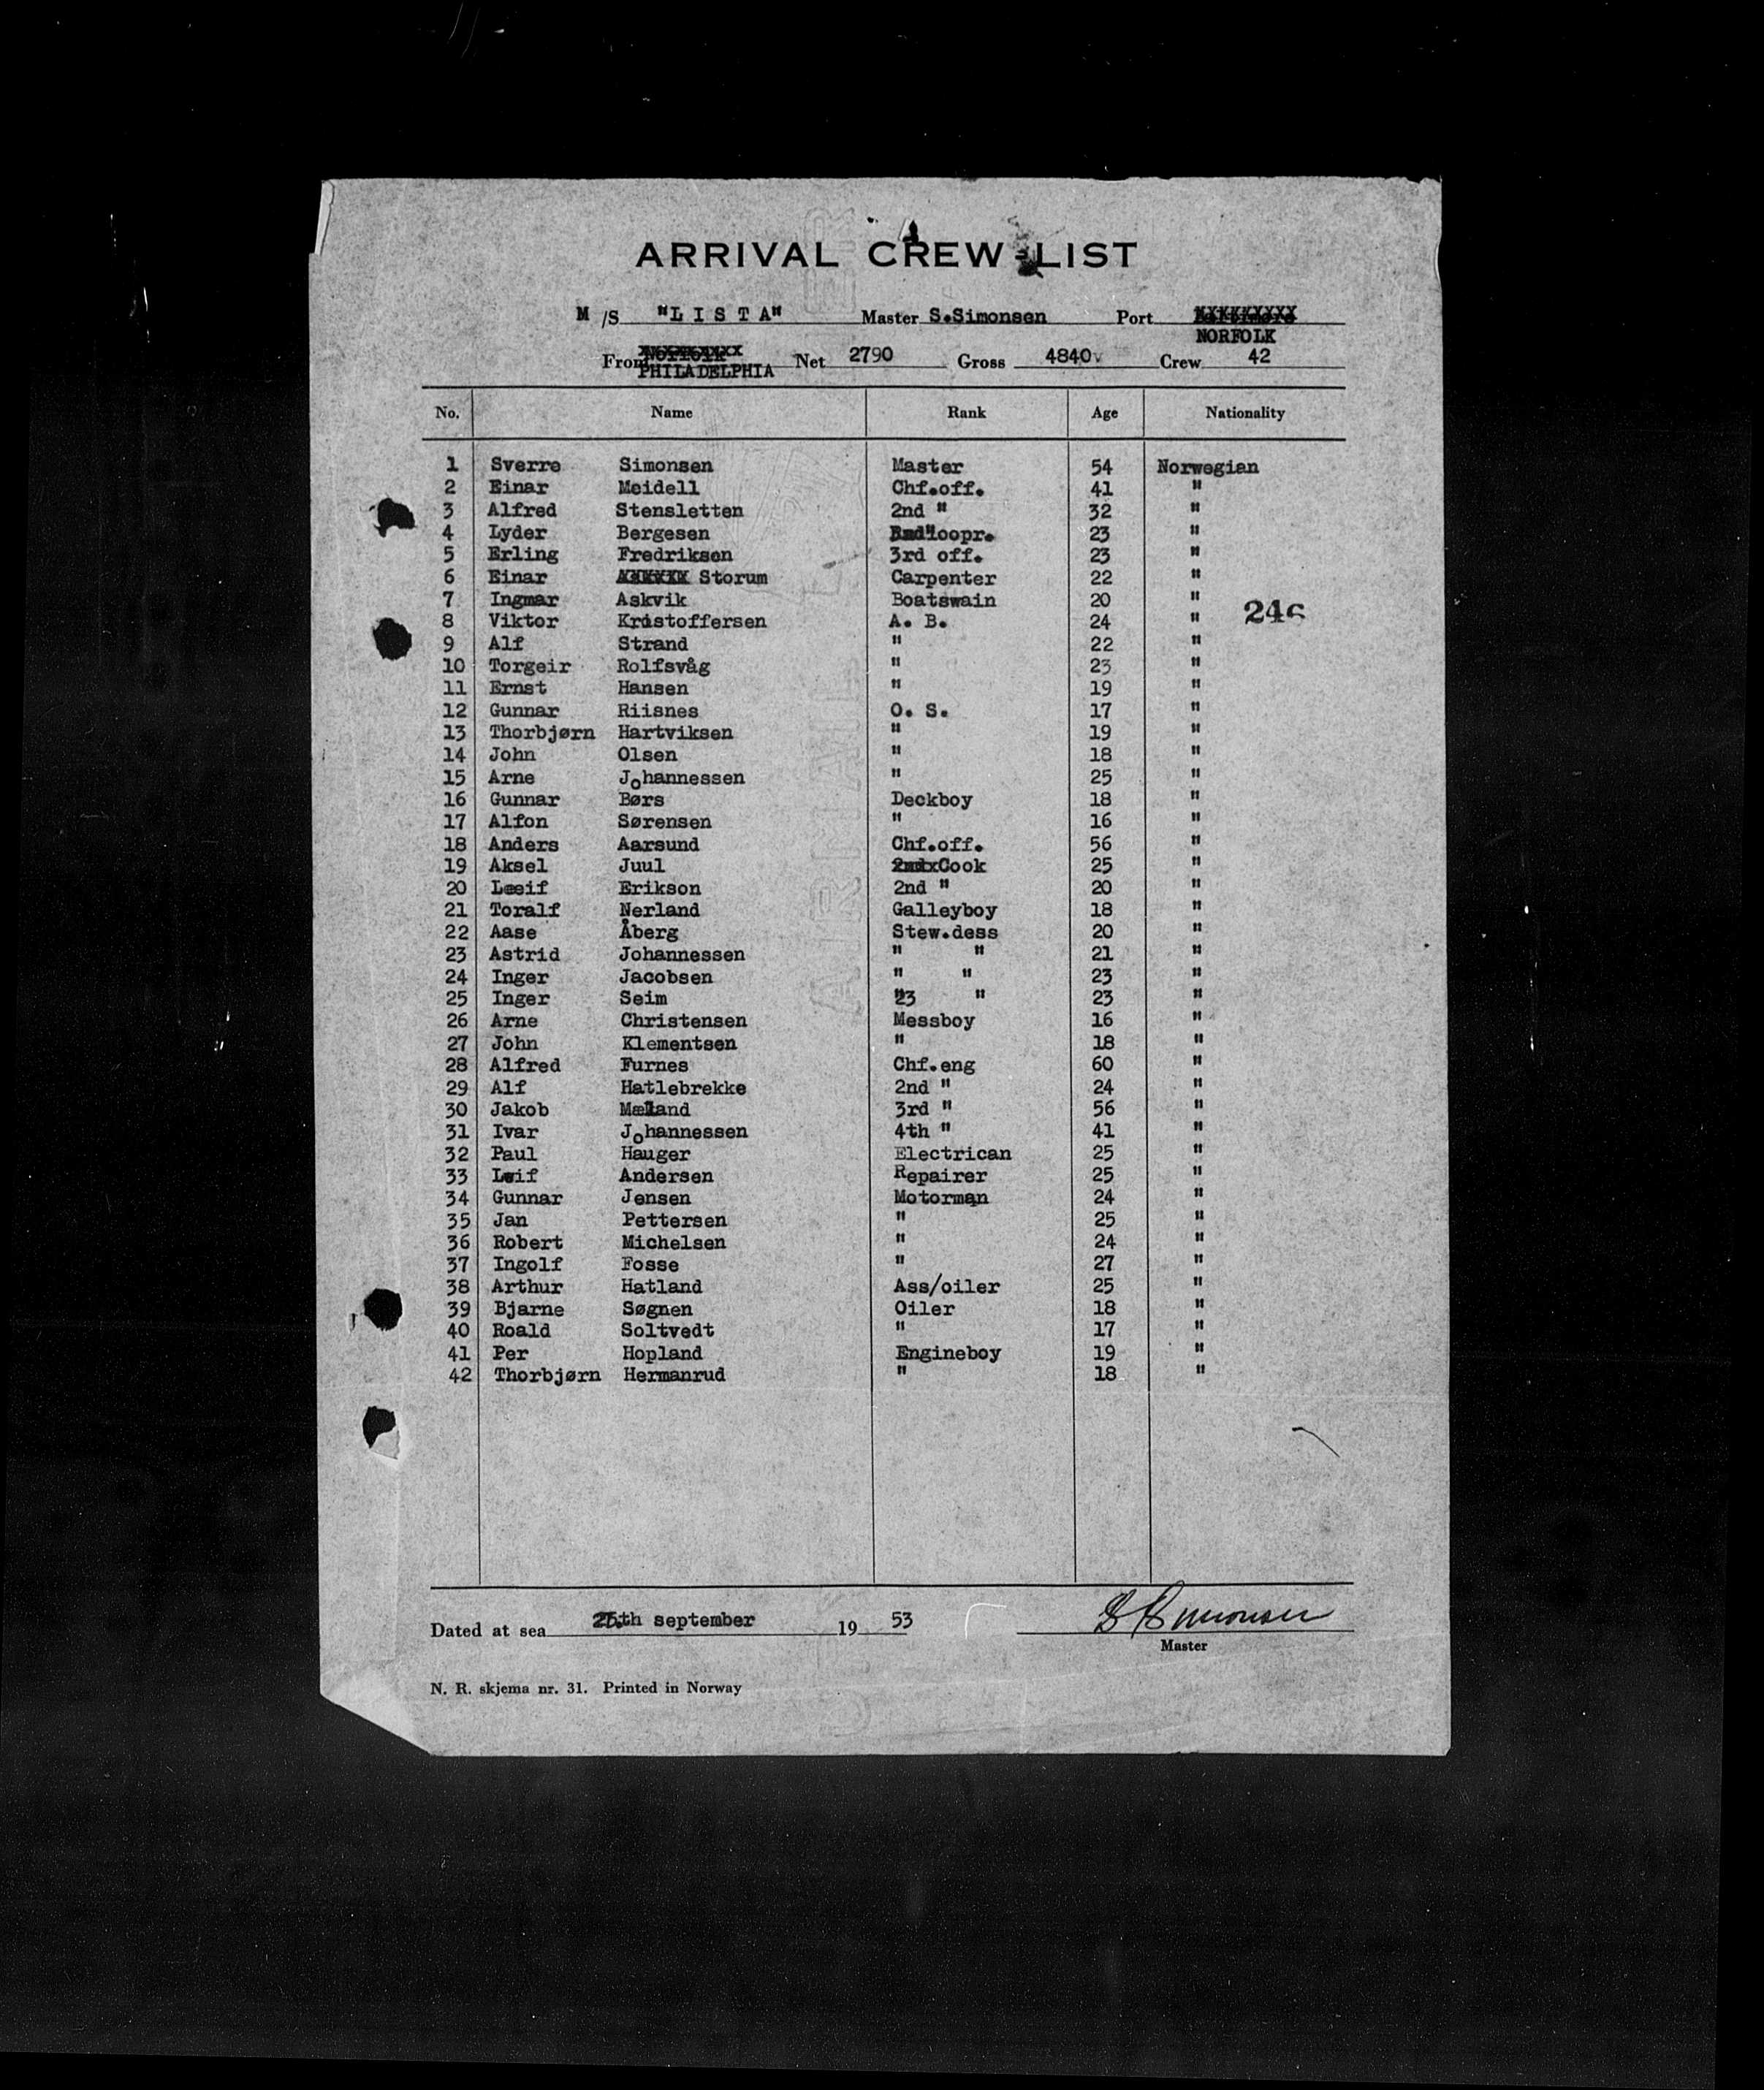 ARRIVAL CREW LIST
M /S "L I S T A" Master S.Simonsen Port
NORFOLK
From PHILADELPHIA Net 2790 Gross 4840 Crew 42
No. Name Rank Age Nationality
1 Sverre Simonsen Master 54 Norwegian
2 Einar Meidell Chf.off. 41 "
3 Alfred Stensletten 2nd " 32 "
4 Lyder Bergesen Radioopr. 23 "
5 Erling Fredriksen 3rd off. 23 "
6 Einar Storum Carpenter 22 "
7 Ingmar Askvik Boatswain 20 "
8 Viktor Kristoffersen A. B. 24 "
9 Alf Strand " 22 "
10 Torgeir Rolfsvåg " 23 "
11 Ernst Hansen " 19 "
12 Gunnar Riisnes O. S. 17 "
13 Thorbjørn Hartviksen " 19 "
14 John Olsen " 18 "
15 Arne Johannessen " 25 "
16 Gunnar Børs Deckboy 18 "
17 Alfon Sørensen " 16 "
18 Anders Aarsund Chf.off. 56 "
19 Aksel Juul Cook 25 "
20 Leeif Erikson 2nd " 20 "
21 Toralf Nerland Galleyboy 18 "
22 Aase Åberg Stew.dess 20 "
23 Astrid Johannessen " " 21 "
24 Inger Jacobsen " " 23 "
25 Inger Seim "23 " 23 "
26 Arne Christensen Messboy 16 "
27 John Klementsen " 18 "
28 Alfred Furnes Chf.eng 60 "
29 Alf Hatlebrekke 2nd " 24 "
30 Jakob Mæland 3rd " 56 "
31 Ivar Johannessen 4th " 41 "
32 Paul Hauger Electrican 25 "
33 Leif Andersen Repairer 25 "
34 Gunnar Jensen Motorman 24 "
35 Jan Pettersen " 25 "
36 Robert Michelsen " 24 "
37 Ingolf Fosse " 27 "
38 Arthur Hatland Ass/oiler 25 "
39 Bjarne Søgnen Oiler 18 "
40 Roald Soltvedt " 17 "
41 Per Hopland Engineboy 19 "
42 Thorbjørn Hermanrud " 18 "
Dated at sea september 19 53 S Simonsen
Master
N. R. skjema nr. 31. Printed in Norway